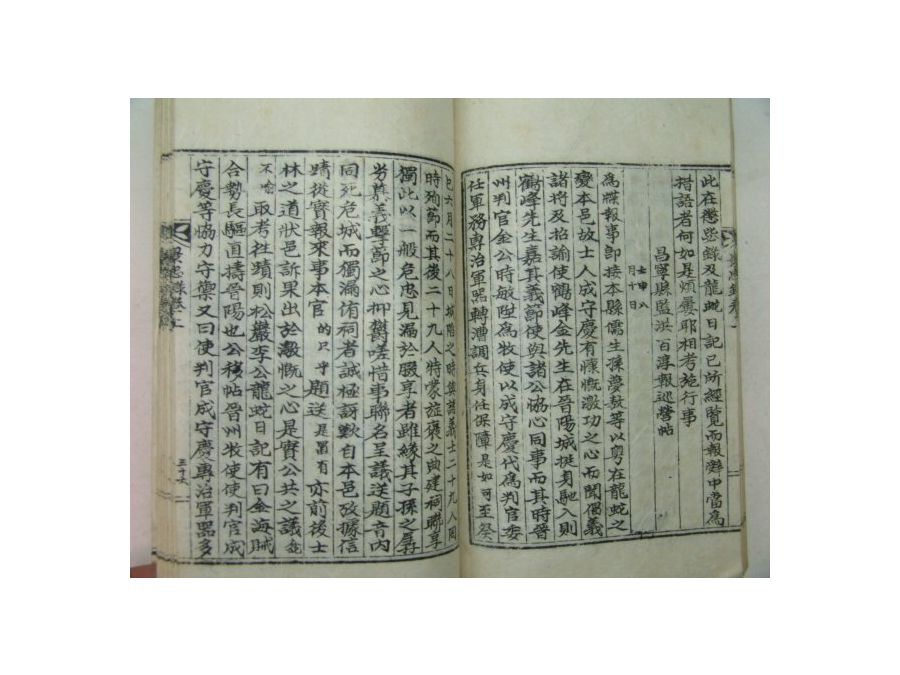 此在懲毖錄及龍蛇日記已所經覽而報辭中當爲
措語者何如是煩屢耶相考施行事
昌寧縣監洪百淳報巡營帖
壬申八
月十日
爲牒報事卽接本縣儒生孫夢敎等以粤在龍蛇之
變本邑故士人成守慶有慷慨激功之心而聞倡義
諸將及招諭使鶴峰金先生在晉陽城挺身馳入則
鶴峰先生嘉其義節使與諸公協心同事而其時晉
州判官金公時敏陞爲牧使以成守慶代爲判官委
任軍務專治軍器轉漕調兵身任保障是如可至癸
巳六月二十八日城陷之時與諸義士二十九人同
時殉節而其後二十九人特蒙旌褒之典建祠聯享
獨此以一般危忠見漏於腏享者雖緣其子孫之孱
劣其義轉節之心抑鬱嗟惜事聯名呈議送題音內
同死危城而獨漏侑祠者誠極訝歎自本邑攷據信
蹟從實報來事本官 的只乎 題送 是置有 亦前後士
林之道狀邑訴果出於激慨之心是實公共之議 
不喩 取考往蹟則松巖李公龍蛇日記有曰金海賊
合勢長驅直擣晉陽也公移帖晉州牧使使判官成
守慶等協力守禦又曰使判官成守慶專治軍器多
三十六